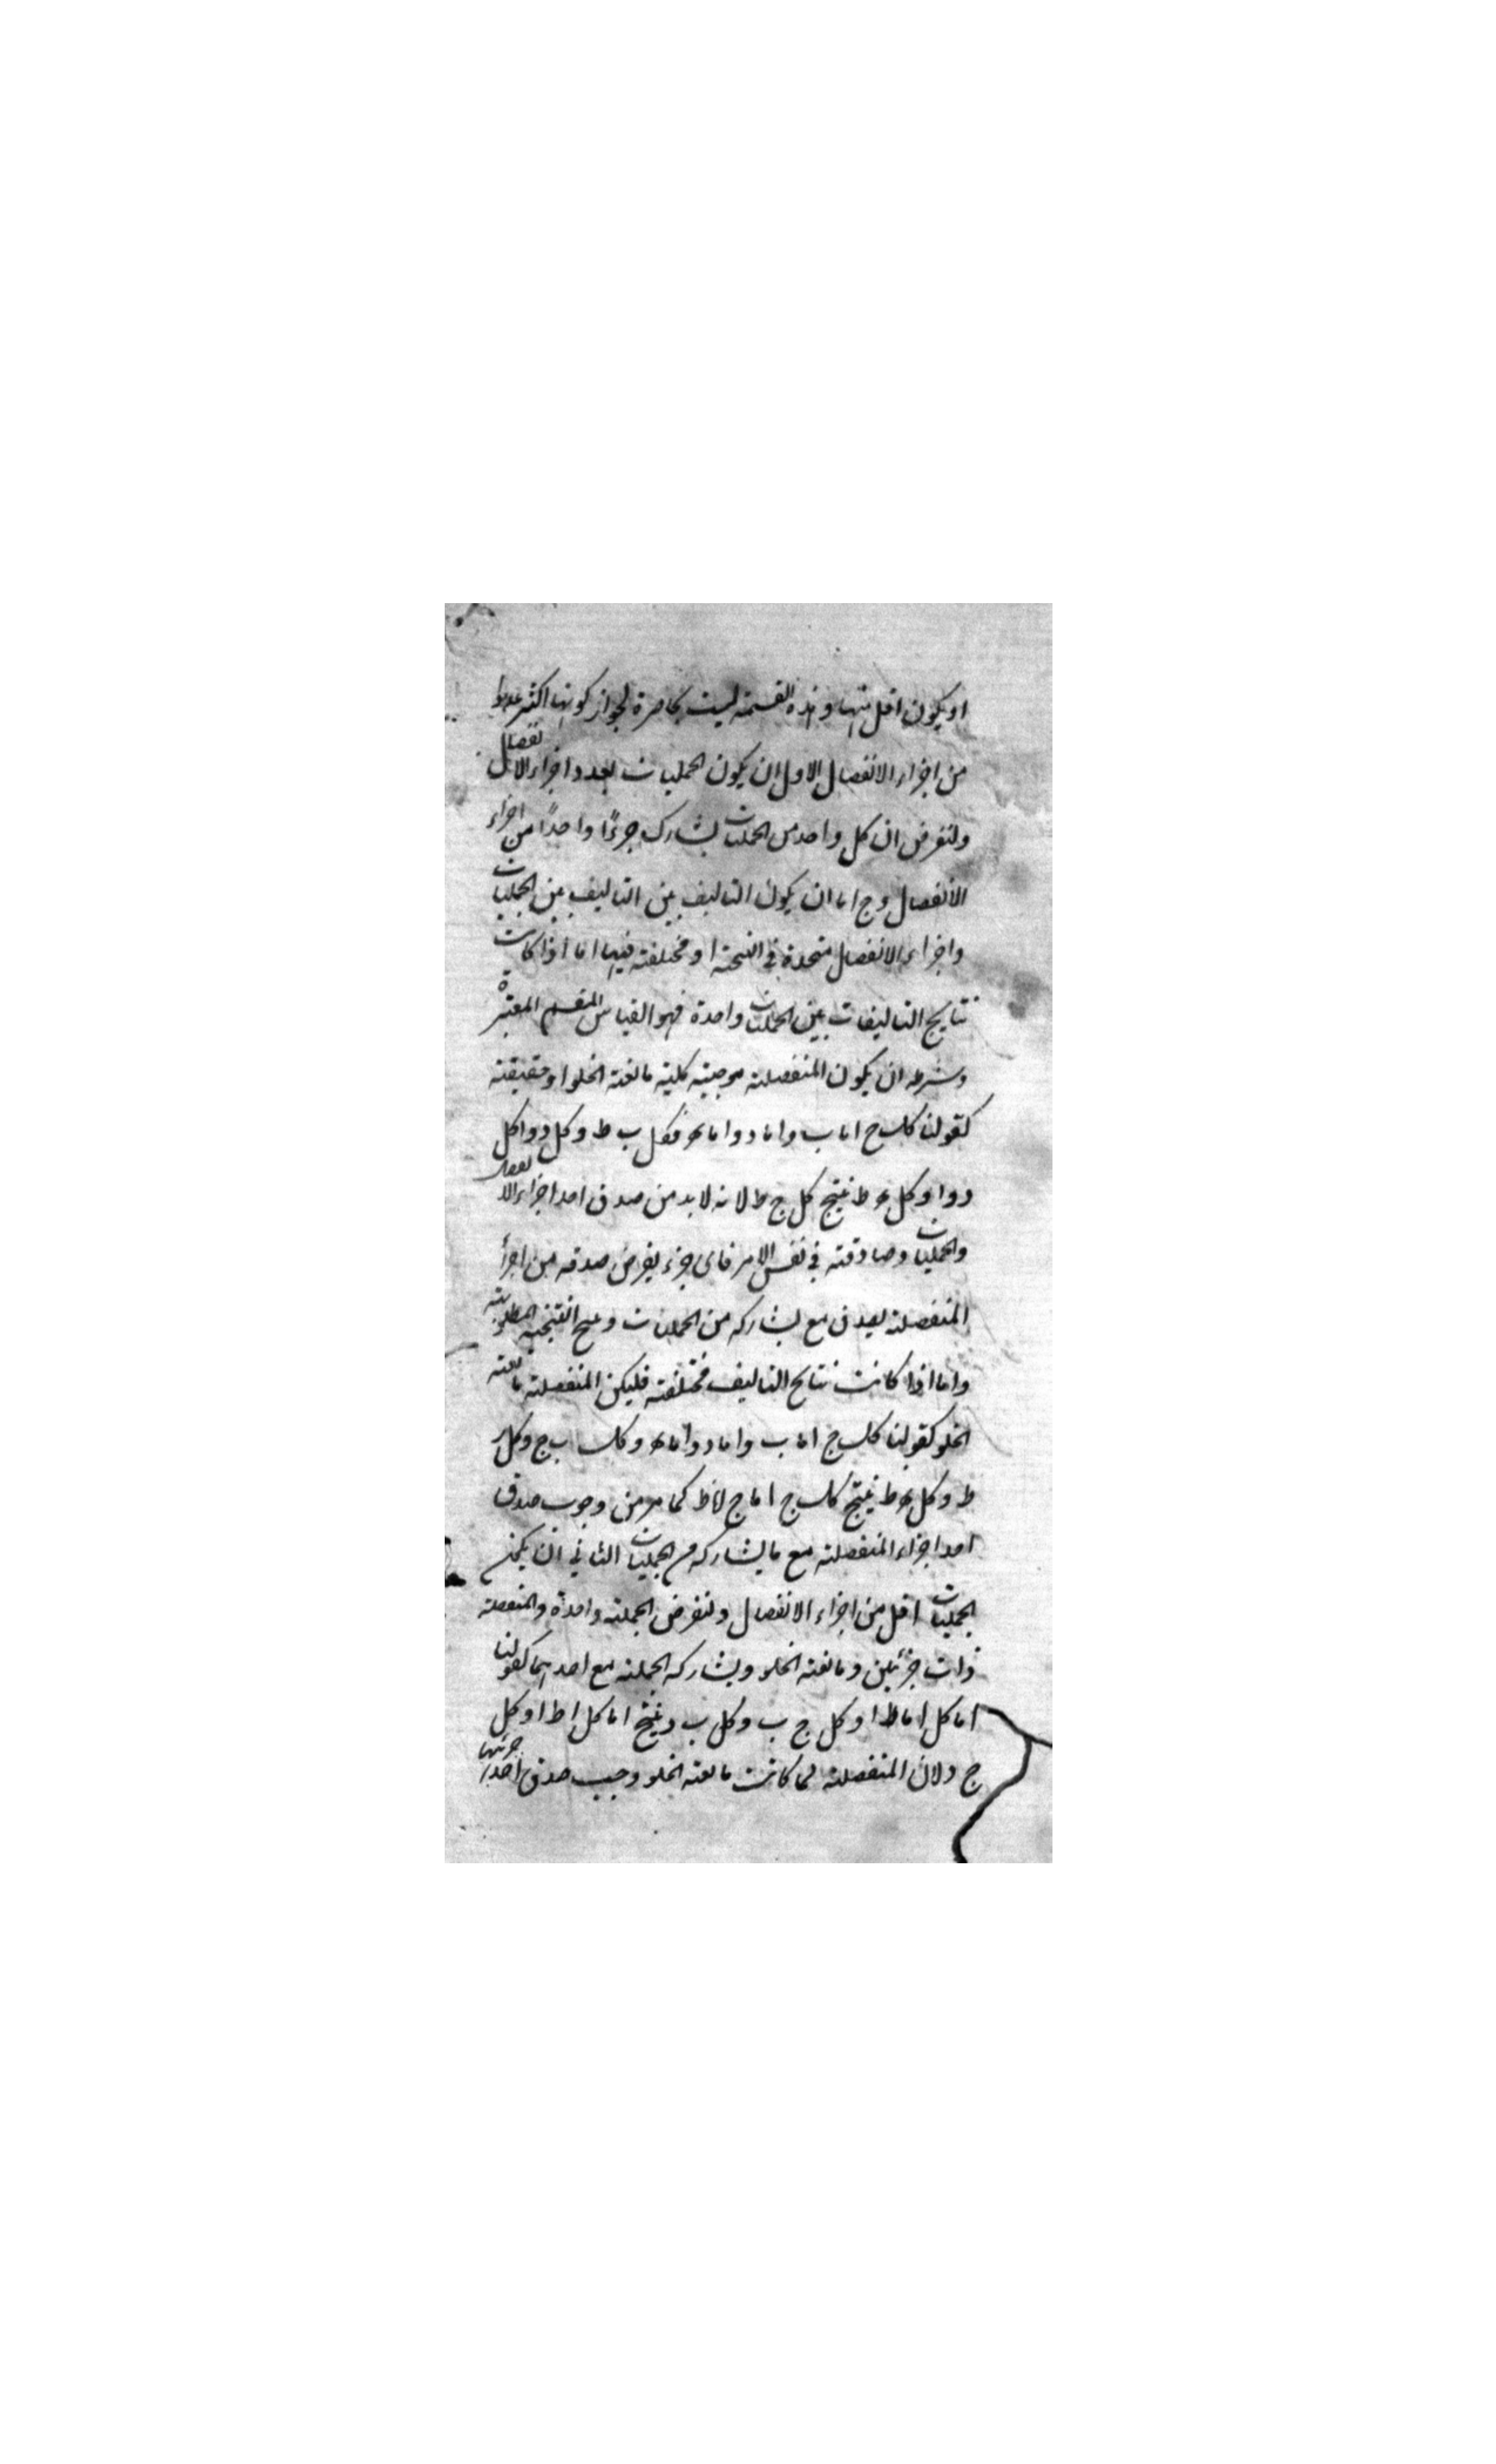 او يكون اقل منها وهذه القسمة ليست بحاصرة لجواز كونها اكثر عددا
من اجزاء الانفصال الاول ان يكون الحمليات بعدد اجزاء الانفصال
ولنفرض ان كل واحد من الحمليات يشارك جزءًا واحدًا من اجزاء
الانفصال وح اما ان يكون التاليف بين التاليف بين الحمليات
واجزاء الانفصال متحدة في النتيجة او مختلفة فيها اما اذا كانت
نتايج التاليفات بين الحمليات واحدة فهو القياس المقسم المعتبرة
وشرطه ان يكون المنفصلة موجبة كلية مانعة الخلو او حقيقة
كقولنا كل ج اما ب واما د واما ه فكل ب ط وكل د واكل
د وا وكل ه ط ينتج كل ج ط لانه لا بد من صدق احد اجزاء الانفصال
والحمليات وصادقة في نفس الامر فاى جزء يفرض صدقه من اجزأ
المنفصلة يصدق مع يشاركه من الحمليات و ينتج النتيجة المطلوبة
واما اذا كانت نتايج التاليف مختلفة فليكن المنفصلة مانعة
الخلو كقولنا كل ج اما ب واما د واما ه وكل ب ج وكل
ط وكل ه ط ينتج كل ج اما ج كما مر من وجوب صدق
احد اجزاء المنفصلة مع ما يشاركه من الحمليات الثاني ان يكون
الحمليات اقل من اجزاء الانفصال ولنفرض الحملية واحدة والمنفصلة
ذات جزئين ومانعة الخلو ويشاركه الحملية مع احديهما كقولنا
اما كل اما ط او كل ج ب وكل ب د ينتج اما كل ا ط او كل
ج د لان المنفصلة لما كانت مانعة الخلو وجب صدق احد جزئيها